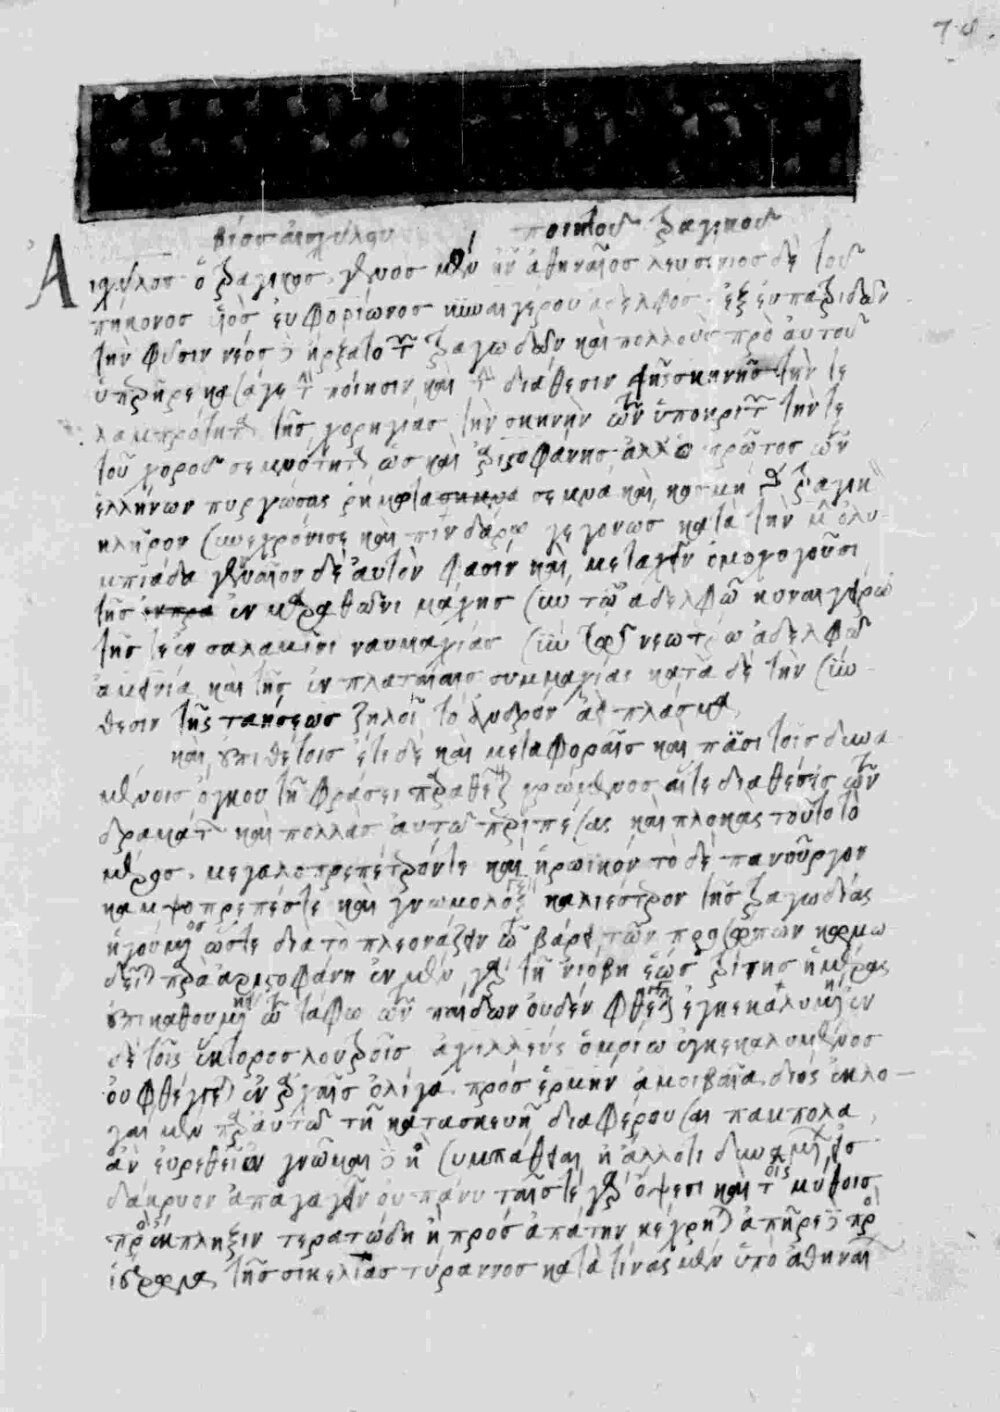 βίος αἰσχύλου ποιητοῦ τραγικοῦ
Αἰσχύλος ὁ τραγικὸς γένος μὲν ἦν ἀθηναῖος λευσίνιος δὲ τοῦ
υἱὸς εὐφορίωνος κυναιγέρου ἀδελφὸς ἐξ εὐπατριδῶν
τὴν φύσιν νέος δὲ ἤρξατο τῶν τραγωδιῶν καὶ πολλοὺς πρὸ αὐτοῦ
τὴν ποίησιν καὶ τὴν διάθεσιν τῆς σκηνῆς τήν τε
λαμπρότητα τῆς χορηγίας τὴν σκηνὴν τῶν ὑποκριτῶν τήν τε
τοῦ χοροῦ σεμνότητα ὡς καὶ ἀριστοφάνης ἀλλ' ὦ πρῶτος τῶν
ἑλλήνων πυργώσας ῥήματα σεμνὰ καὶ
κλῆρον συνεχρόνισε καὶ πινδάρω γεγονὼς κατὰ τὴν μ ὀλυ-
μπιάδα γενναῖον δὲ αὐτὸν φασὶν καὶ μετασχεῖν ὁμολογοῦσι
τῆς ἐν μαραθῶνι μάχης σὺν τῶ ἀδελφῶ κυναιγείρω
τῆς τε ἐν σαλαμῖνι ναυμαχίας σὺν τῶ νεωτάτω ἀδελφῶ
ἀμεινία καὶ τῆς ἐν πλαταιαῖς συμμαχίας κατὰ δὲ τὴν συν-
θεσιν τῆς ποιήσεως ζηλοῖ τὸ ἁδρὸν ἀεὶ πλάσμα
καὶ ἐπιθέτοις ἔτι δὲ καὶ μεταφοραῖς καὶ πᾶσι τοῖς δυνα-
μένοις ὄγκον τῆ φράσει περιθεῖναι χρώμενος αἵ τε διαθέσεις τῶν
δραμάτων καὶ πολλὰς αὐτῶ περιπετείας καὶ πλοκὰς
μεγαλοπρεπές τε καὶ ἡρωικὸν τὸ δὲ πανοῦργον
κομψοπρεπές τε καὶ γνωμολογικὸν τῆς τραγωδίας
ἡγούμενος ὥστε διὰ τὸ πλεονάζειν τῶ βάρει τῶν προσώπων κωμω
δεῖται παρὰ ἀριστοφάνη ἐν μὲν γὰρ τῆ νιόβη ἕως τρίτης ἡμέρας
ἐπικαθημένη τῶ τάφω τῶν παίδων οὐδὲν φθέγγεται ἐγκεκαλυμμένη ἐν
δὲ τοῖς ἕκτορος λούτροις ἀχιλλεὺς ὁμοίως ἐγκεκαλυμμένος
οὐ φθέγγεται ἐν ἀρχαῖς ὀλίγα πρὸς ἑρμὴν ἀμοιβαῖα διὸς ἐκλο-
γαὶ μὲν παρ' αὐτῶ τῆ κατασκευῆ διαφέρουσαι πάμπολλαι
ἂν εὑρεθεῖεν γνῶμαι δὲ ἢ συμπάθειαι ἢ ἄλλο τι δυναμένων εἰς
δάκρυον ἀπαγαγεῖν οὐ πάνυ ταῖς τε γὰρ ὄψεσι καὶ τοῖς μύθοις
πρὸς ἔκπληξιν τερατώδη ἢ πρὸς ἀπάτην κέχρηται ἀπῆρε δὲ πρὸς
ἱέρωνα τῆς σικελίας τύραννος κατὰ τινὰς μὲν ὑπὸ ἀθηναί